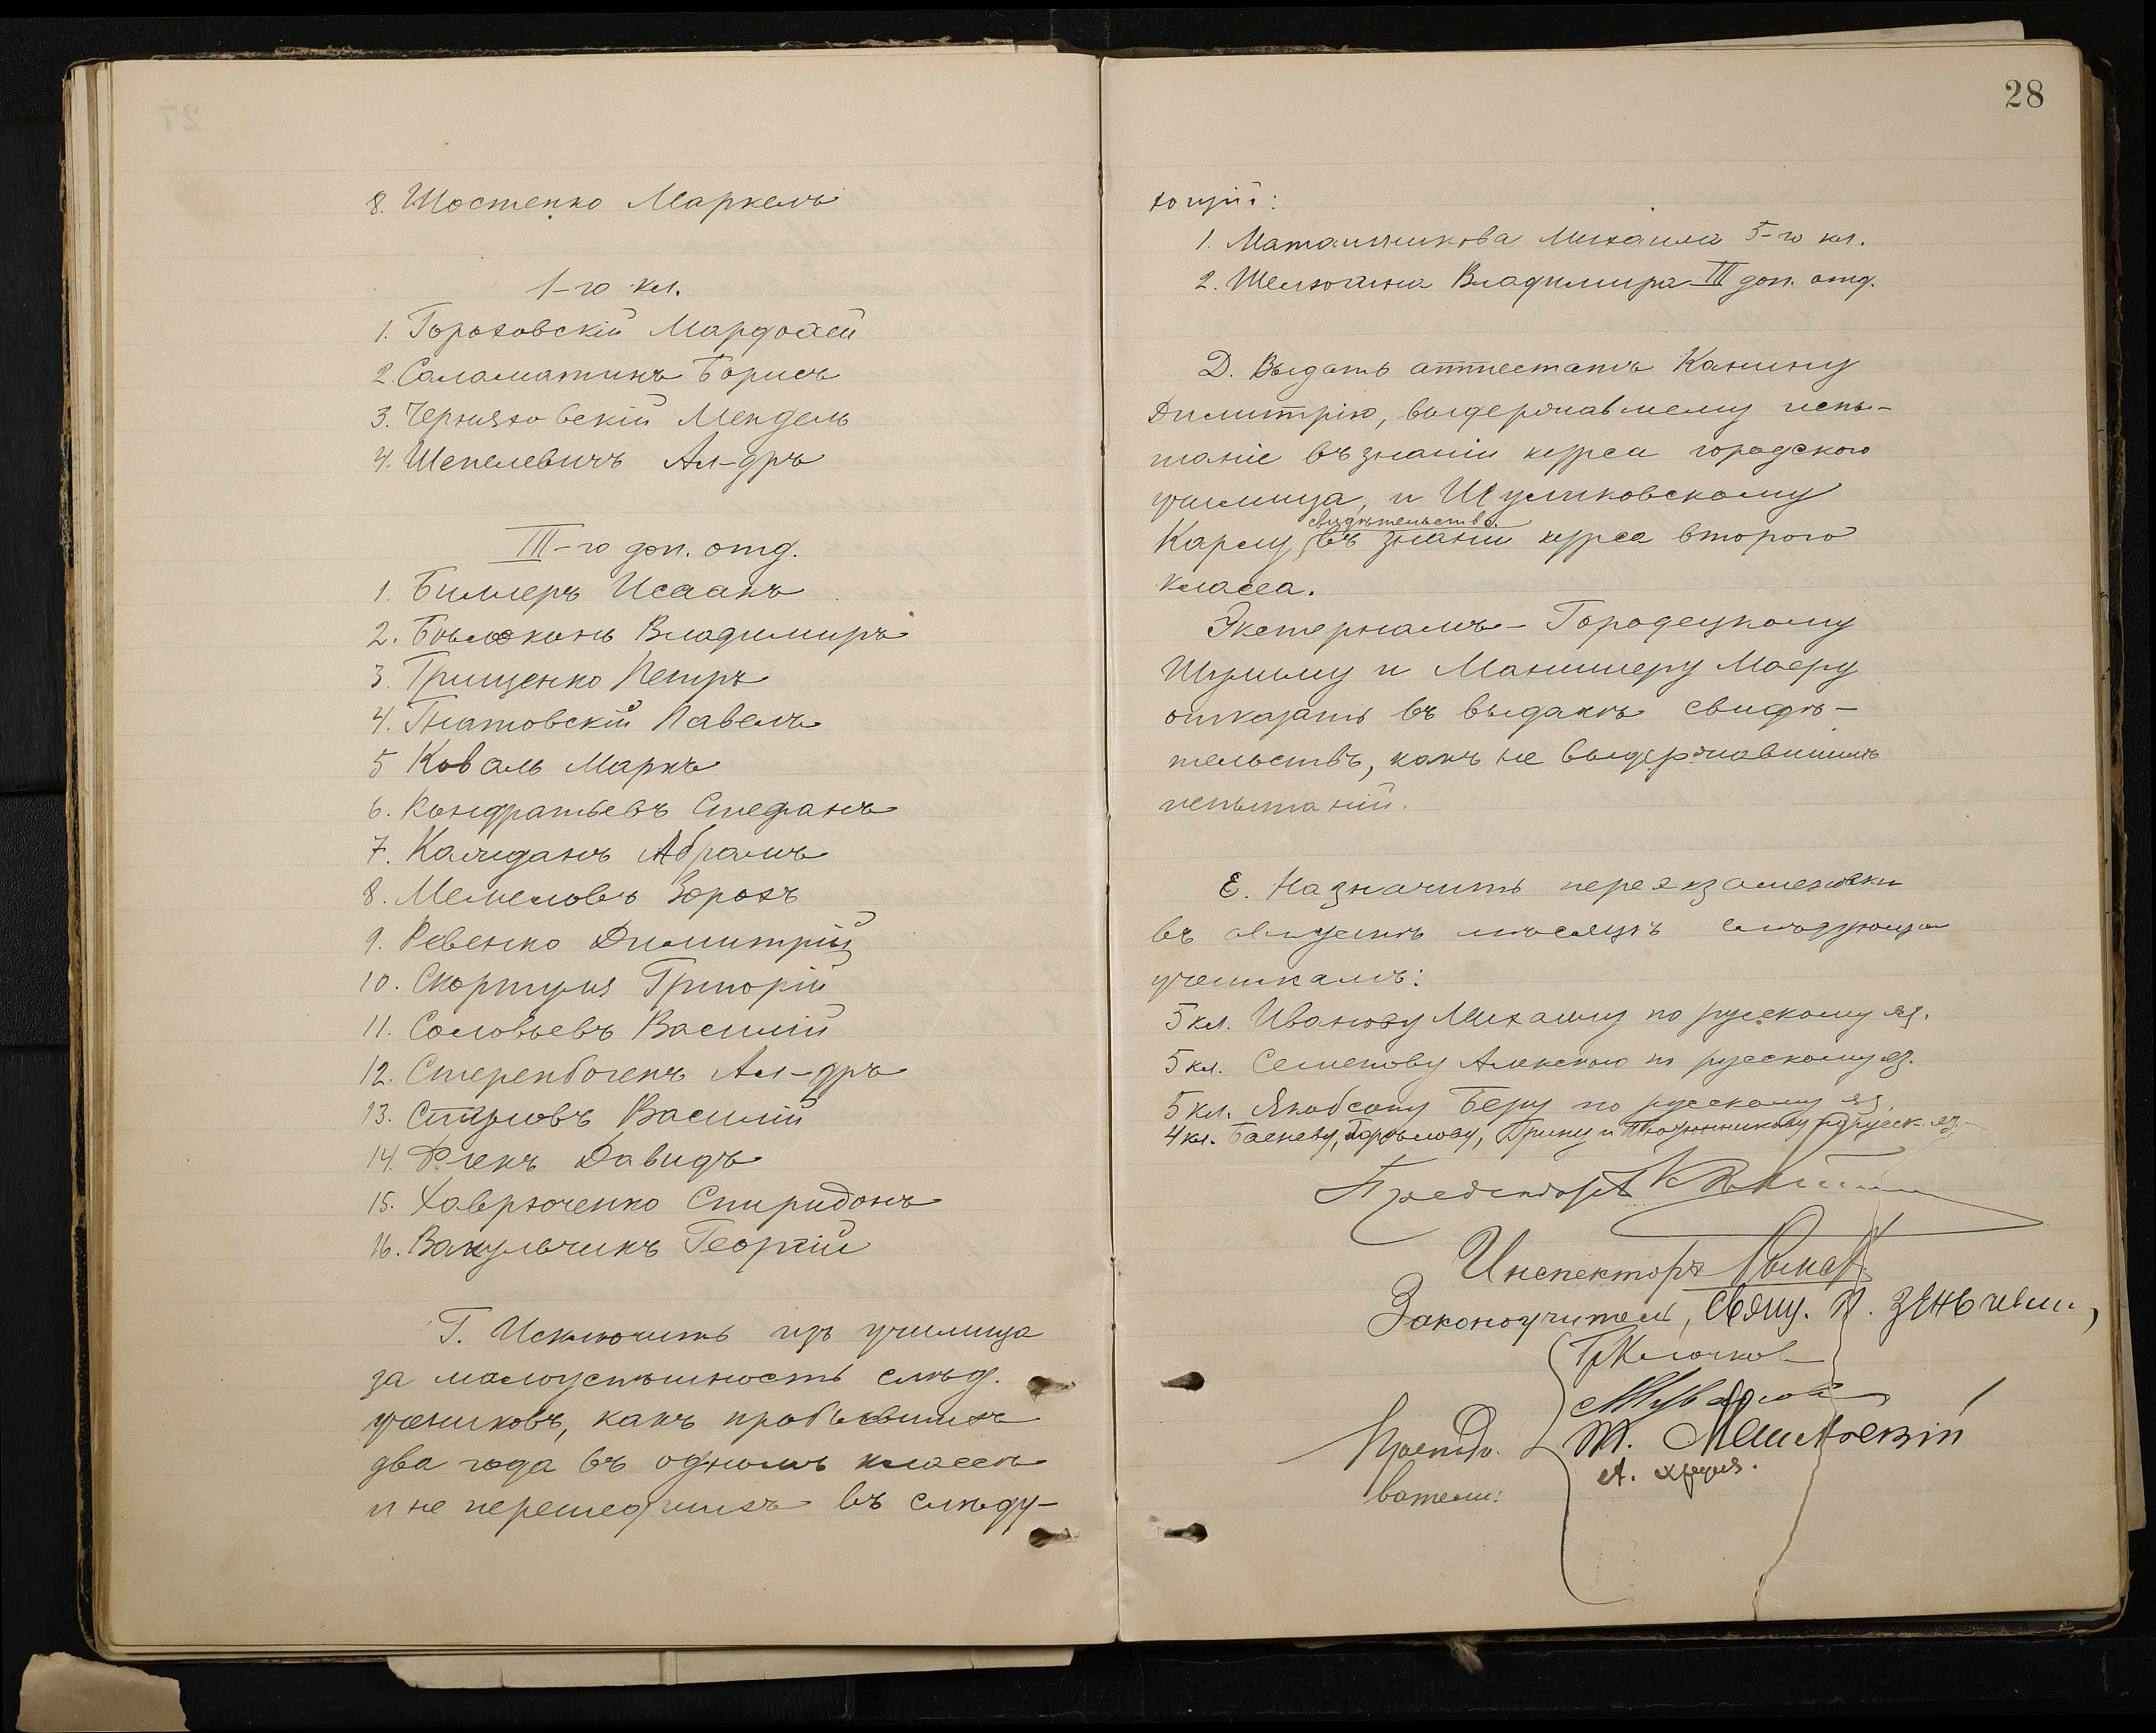 8. Шостенко Маркелъ
1-го кл.
1. Гороховскій Мардохей
2. Саламатинъ Борисъ
3. Черняховскій Мендель
4. Шепелевичъ Ал-дръ
III-го доп. отд.
1. Биллеръ Исаакъ
2. Владимиръ
3. Грищенко Петръ
4. Гнатовскій Павелъ
5 Коваль Маркъ
6. Кондратьевъ Стефанъ
7. Абрамъ
8. Мемеловъ
9. Ревенко Димитрій
10. Григорій
11. Соловьевъ Василій
12. Ал-дръ
13. Василій
14. Давидъ
15. Хаврюченко Спиридонъ
16. Вакульчикъ Георгій
Г. Исключить изъ училища
за малоуспѣшность слѣд.
учениковъ, какъ пробывшихъ
два года въ одномъ классѣ
и не перешедшихъ въ слѣду-
28
ющій:
1. Михаила 5-го кл.
2. Владимира III доп. отд.
Д. Выдать аттестатъ Канину
Димитрію, выдержавшему испы-
таніе въ знаніи курса городского
училища, и Шумковскому
свидѣтельство
Карлу, въ знаніи курса второго
класса.
Экстернамъ - Городецкому
и
отказать въ выдачѣ свидѣ-
тельствъ, какъ не выдержавшимъ
испытаній.
Е. Назначить переэкзаменовки
въ августѣ мѣсяцѣ слѣдующимъ
ученикамъ:
5 кл. Иванову Михаилу по русскому яз.
5 кл. Семенову Алексѣю по русскому яз.
5 кл. Якобсону Беру по русскому яз.
4 кл. и по русск. яз.
Предсѣдатель
Инспекторъ
Законоучитель, Свящ. П.
Препода-
ватели: